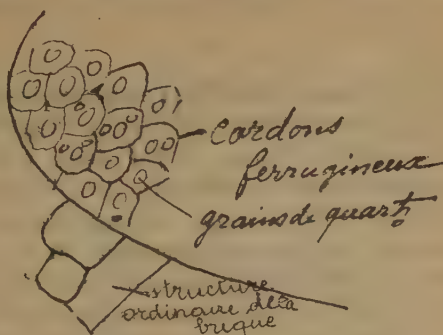 cordons
ferrugineux
grains de quartz
structure
ordinaire de la
brique